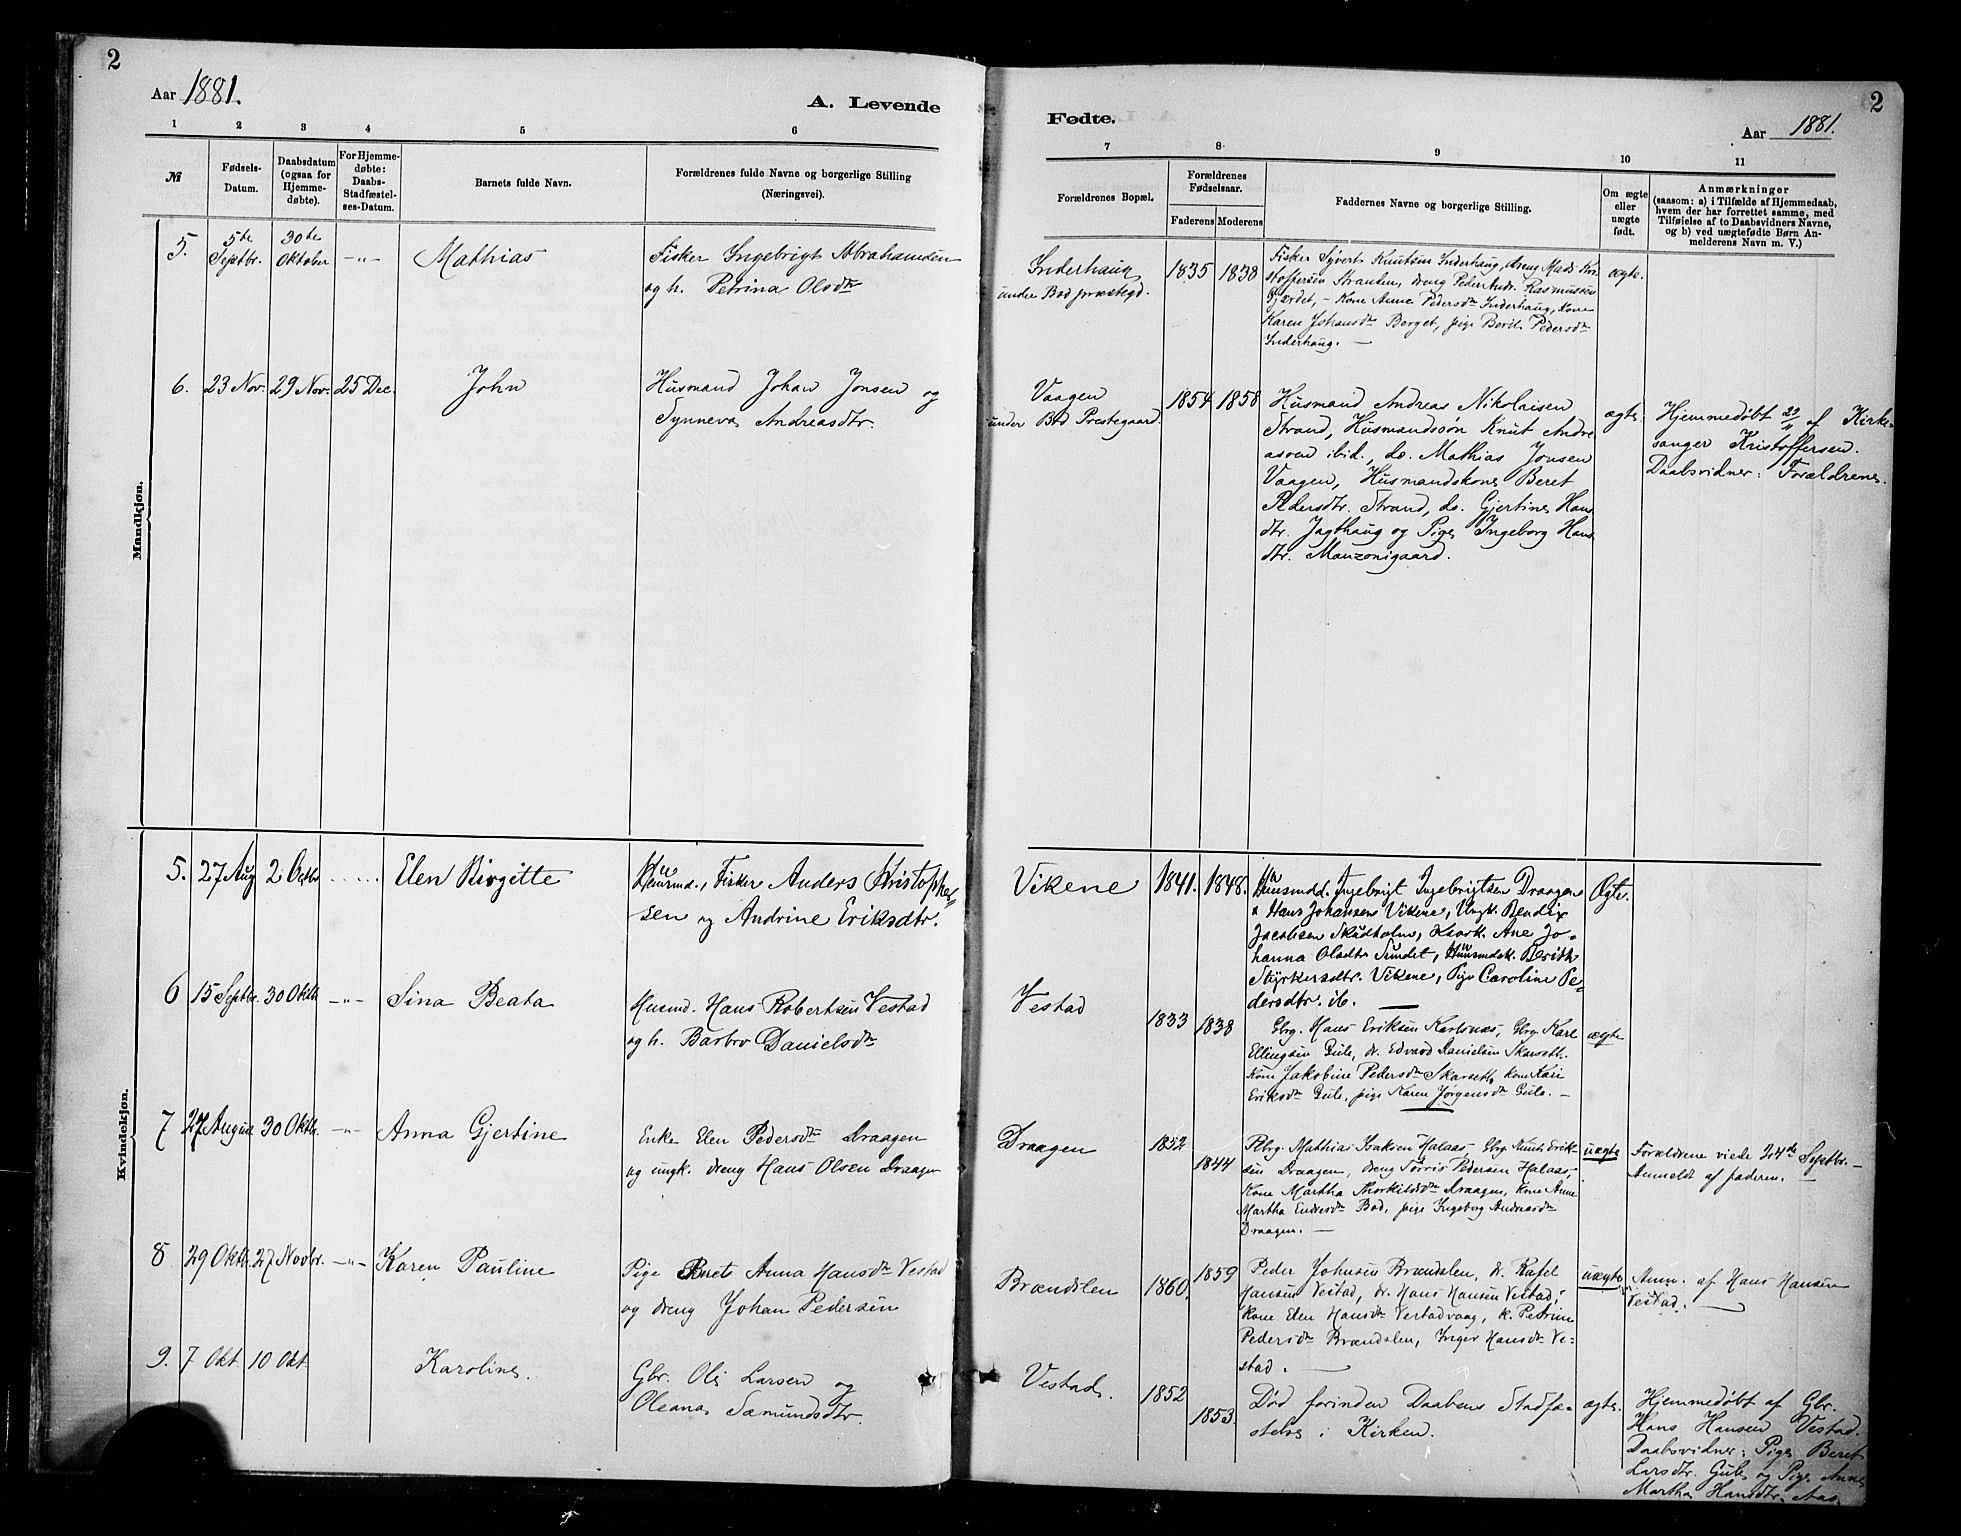 2
Aar 1881.
A. Levende
1 2 3 4 5 6
№
Fødsels-
Datum.
Daabsdatum
(ogsaa for
Hjemme-
døbte).
For Hjemme-
døbte:
Daabs-
Stadfæstel-
ses-Datum.
Barnets fulde Navn.
Forældrenes fulde Navne og borgerlige Stilling
(Næringsvei).
Mandkjøn.
5. 5te Septbr. 30te Oktober -"- Mathias
Fisker Ingebrigt Abrahamsen
og h. Petrina Olsdtr
6. 23 Nov. 29 Nov. 25 Dec. John
Husmand Johan Jonsen og
Synneva Andreasdtr.
Kvindekjøn.
5. 27 Aug 2 Octbr ..... Elen Birgitte
Huusmd., Fisker Anders Kristophe-
sen og Andrine Eriksdtr.
6 15 Septbr. 30 Oktbr. -"- Sina Beata
Husmd. Hans Robertsen Vestad
og h. Barbro Danielsdtr
7 27 August 30 Oktbr. -"- Anna Gjertine
Enke Elen Pedersdtr Draagen
og ungk. dreng Hans Olsen Draagen
8 29 Oktbr. 27 Novbr. -"- Karen Pauline
Pige Beret Anna Hansdtr Vestad
og dreng Johan Pedersen
9. 7 Okt. 10 Okt. Karoline.
Gbr. Ole Larsen og
Oleana Sæmundsdtr.
Fødte.
2
Aar 1881.
7 8 9 10 11
Forældrenes Bopæl.
Forældrenes
Fødselsaar.
Faderens Moderens
Faddernes Navne og borgerlige Stilling.
Om ægte
eller
uægte
født.
Anmærkninger
(saasom: a) i Tilfælde af Hjemmedaab,
hvem der har forrettet samme, med
Tilføielse af to Daabsvidners Navne,
og b) ved uægtefødte Børn An-
melderens Navn m. V.)
Inderhaug
under Bod præstegd.
1835 1838
Fisker Syvert Knutsen Inderhaug, dreng Mads Kri-
stoffersen Stranden, dreng Peder Andr. Rasmussen
Gjærdet, - Kone Anne Pedersdtr Inderhaug, kone
Karen Johansdtr Berget, pige Beril. Pedersdtr
Inderhaug. —
ægte.
Vaagen
under Bod Prestegaard.
1854 1858
Husmand Andreas Nikolaisen
Strand, Husmandssøn Knut Andre
asen ibid., do. Mathias Jonsen
Vaagen, Husmandskone Beret
Pedersdtr. Strand, do. Gjertine Hans
dtr. Jagthaug og Pige Ingeborg Hans
dtr. Manzonigaard.
ægte.
Hjemmedøbt 29/11 af Kirke-
sanger Kristoffersen.
Daabsvidner: Forældrene.
Vikene 1841. 1848.
Huusmdd. Ingebrigt Ingebrigtsen Draagen
& Hans Johansens Vikene, Ungk. Bendix
Jacobsen Skudholm, Ane Jo-
hanna Olsdtr Sundet, Huusmdsk. Berith
Styrkersdtr. Vikene, Pige Caroline Pe-
dersdtr. ib. —
Ægte.
Vestad 1833 1838
Gbrg. Hans Eriksen Karlsnæs, Gbrg. Karl
Ellingsen Gule, dr. Edvard Danielsen Skarsett.
Kone Jakobine Pedersdtr Skarsett, kone Kari
Eriksdtr Gule, pige Karen Jørgensdtr Gule. —
ægte
Draagen 1852 1844
Gbrg. Mathias Isaksen Halaas, Gbrg. Knut Erik-
sen Draagen, dreng Torris Pedersen Halaas,
Kone Martha Thorkildsdtr Draagen, kone Anne
Martha Endresdtr Bod, pige Ingeborg Andreasdtr
Draagen. —
uægte
Forældrene viede 24de Septbr. —
Anmeldt af faderen.
Brændslen 1860. 1859
Peder Johnsen Brændslen, dr. Rafel
Hansen Vestad, dr. Hans Hansen Vestad,
kone Elen Hansdtr Vestadvaag, k. Petrine
Pedersdtr Brændslen, Inger Hansdtr Ve-
stad. —
uægte
Anm. af Hans Hansen
Vestad. —
Vestad. 1852 1853.
Død forinden Daabens Stadfæ-
stelse i Kirken.
ægte.
Hjemmedøbt af Gbr.
Hans Hansen Vestad.
Daabsvidner: Pige Beret
Larsdtr. Gule og Pige Anne
Martha Hansdtr. Aas.